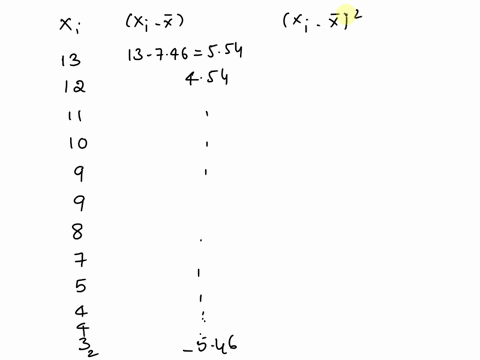 xᵢ (xᵢ - x̄) (xᵢ - x̄)²
13 13-7.46 = 5.54
12 4.54
11
10
9
9
8
7
5
4
4
3
2 -5.46